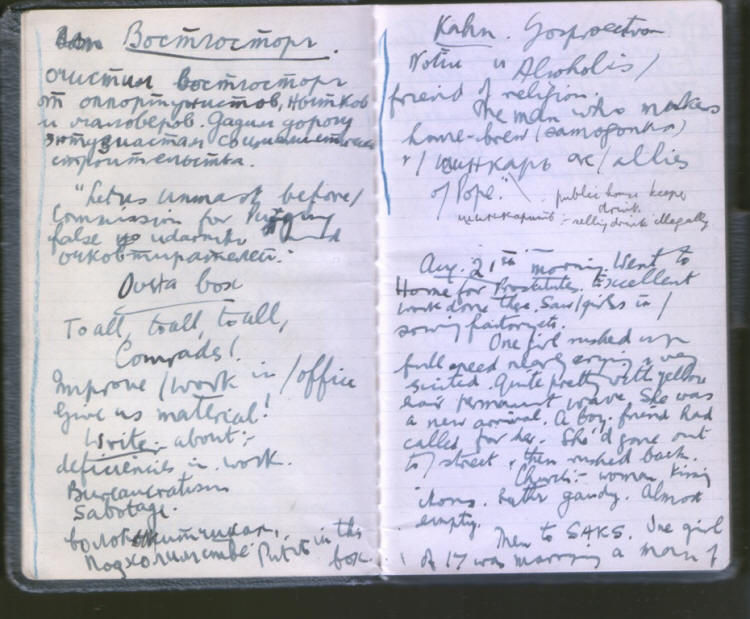 Востгосторг.
очистим Востгосторг
от оппортунистов, нытиков
и маловеров. Дадим дорогу
энтузиастам социалистическ
строительства.
"Let us unmask before /
Commission for Purging
false udarniki and
очковтирателей."
box
To all, to all, to all,
Comrades!
Improve / work in / office
Give us material!
Write about:-
deficiencies in work.
Bureaucratism
Sabotage.
волокитчиках,
подхолимстве Put it in the
box.
Kahn.
Notice is Alcoholis /
friend of religion.
The man who makes
home-brew (samogonka)
/ шинкарь are / allies
of Pope."
public house keeper
drink
шинкарить - selling drink illegally
Aug. 21st morning. Went to
Home for Prostitutes. Excellent
work done there. Saw / girls in /
sewing factory etc.
One girl rushed up
full speed nearly crying & very
excited. Quite pretty with yellow
hair permanent wave. She was
a new arrival. A boy-friend had
called for her. She'd gone out
to / street, & then rushed back.
Church:- woman kissing
ikons. Rather gaudy. Almost
empty.
Then to SAKS. One girl
of 17 was marrying a man of